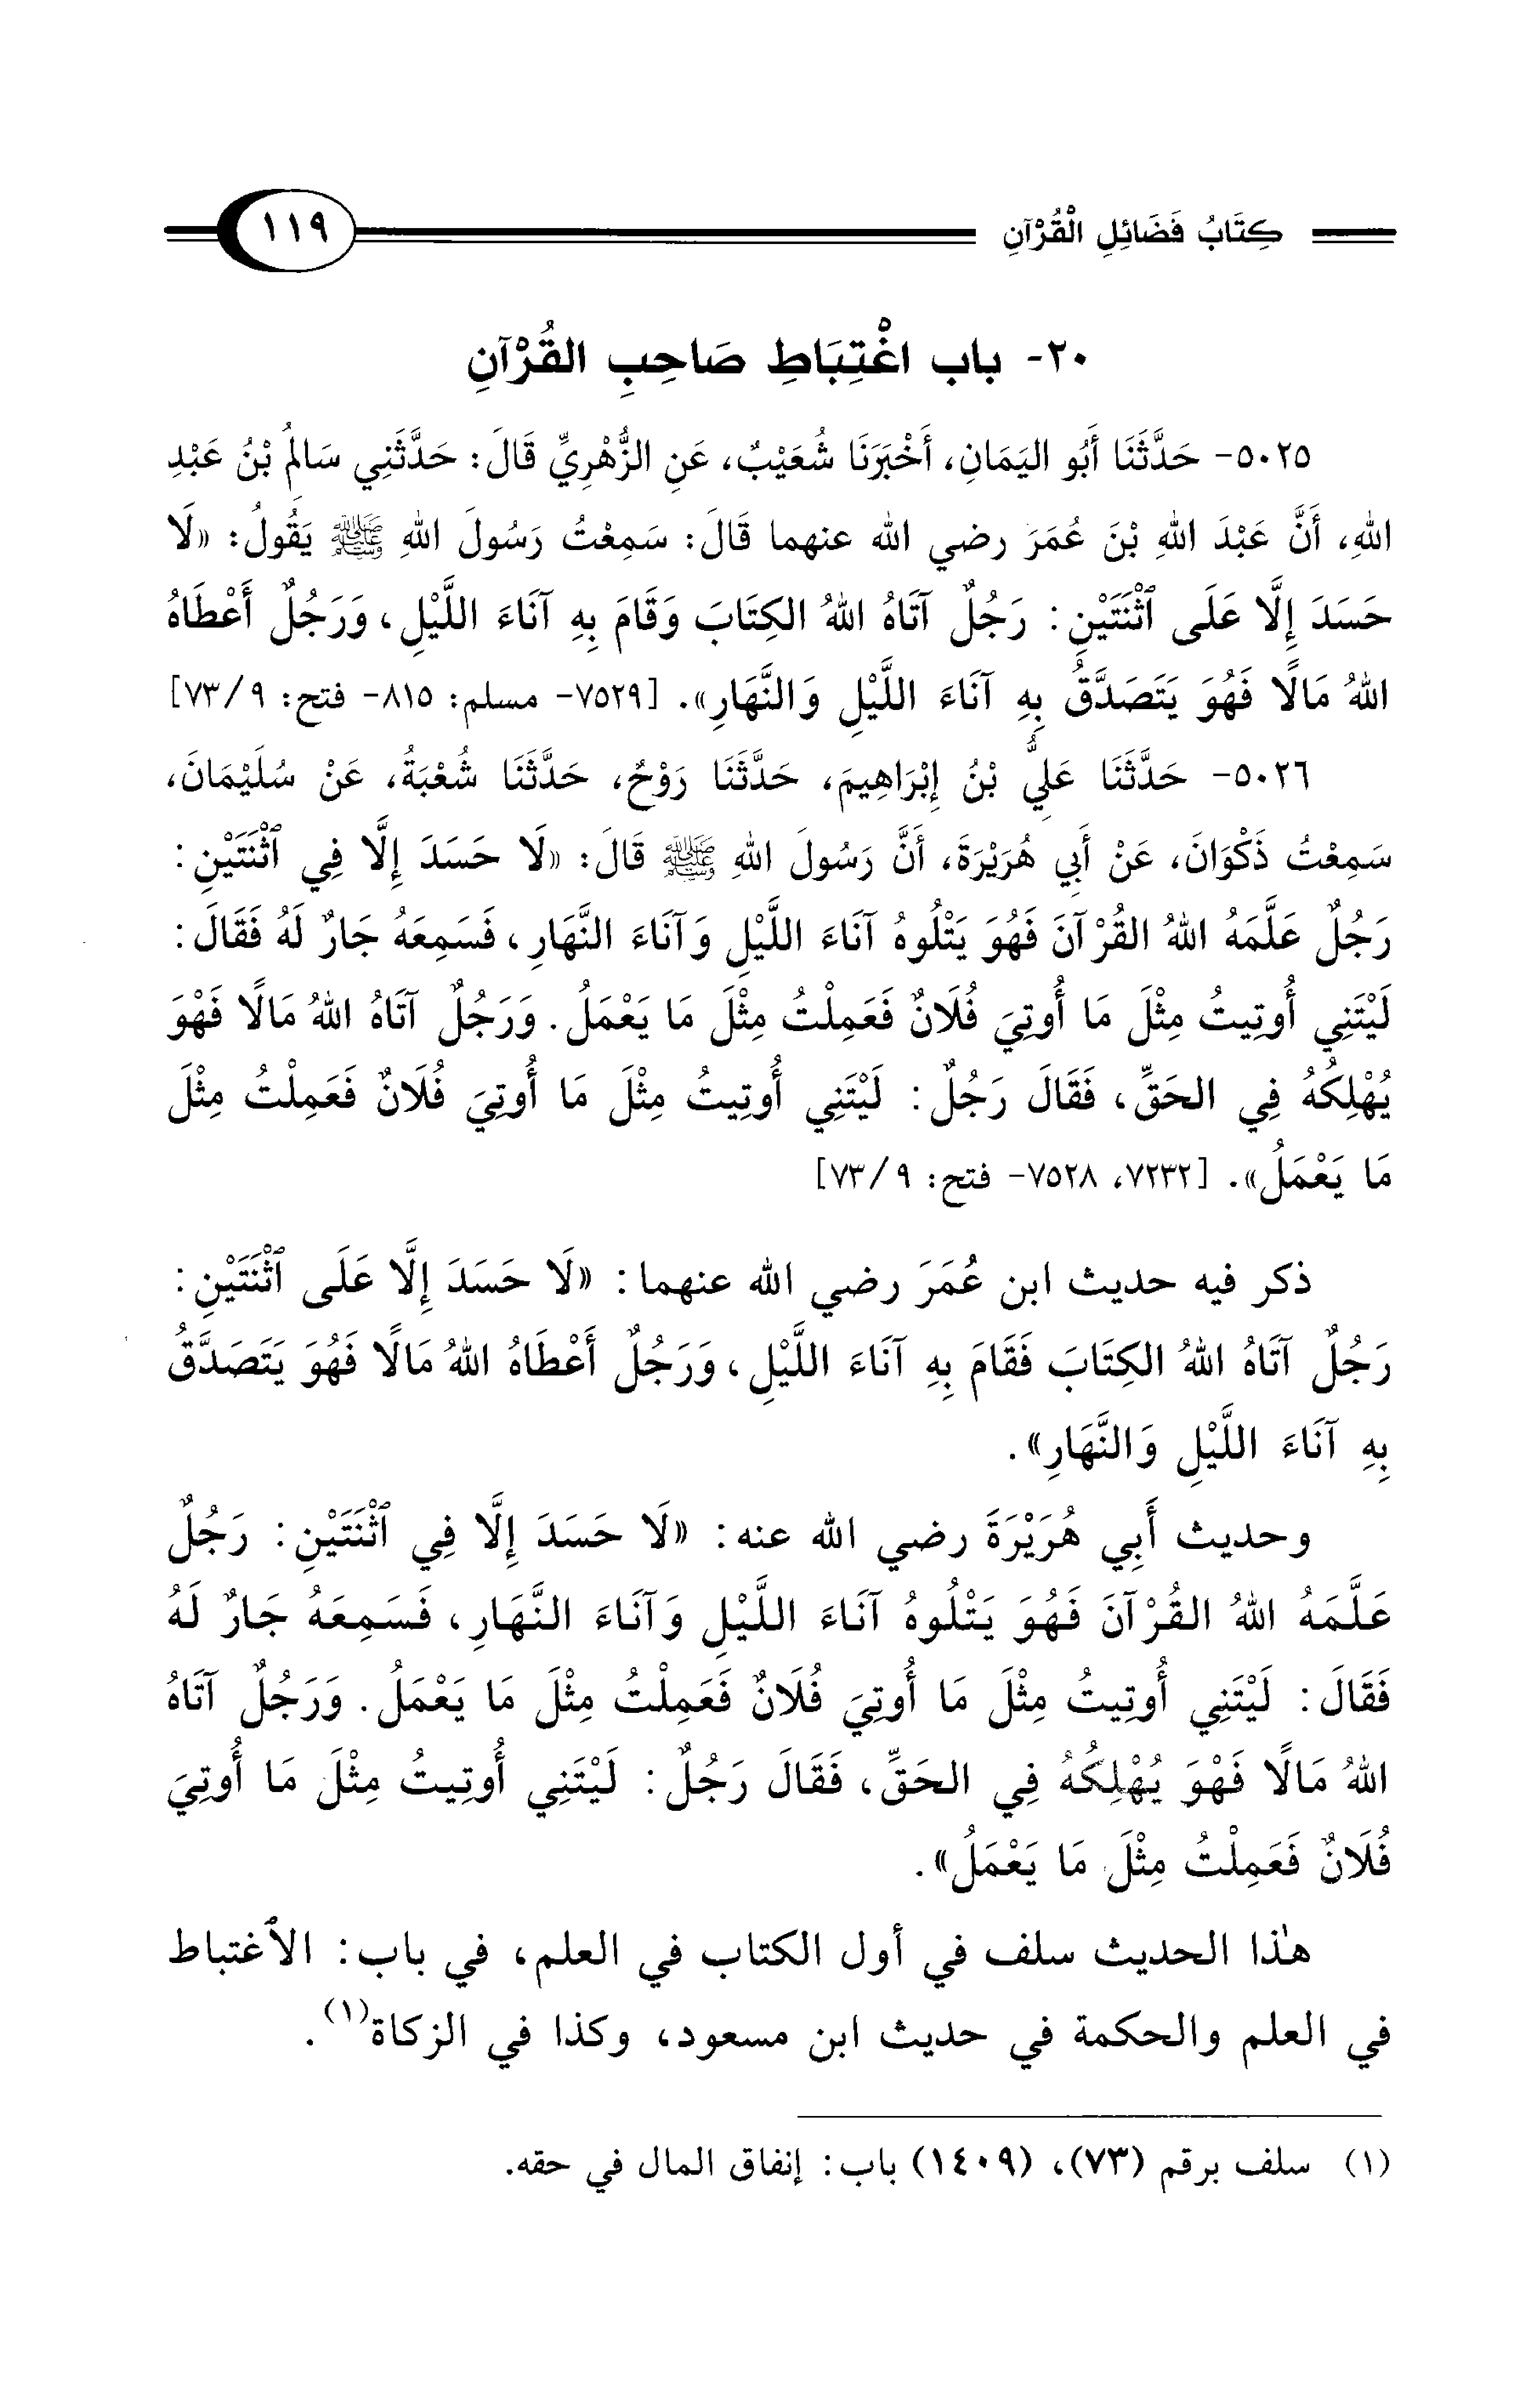 كِتَابُ فَضَائِلِ الْقُرْآنِ ١١٩
٢٠- باب اغْتِبَاطِ صَاحِبِ القُرْآنِ
٥٠٢٥- حَدَّثَنَا أَبُو اليَمَانِ، أَخْبَرَنَا شُعَيْبٌ، عَنِ الزُّهْرِيِّ قَالَ: حَدَّثَنِي سَالِمُ بْنُ عَبْدِ
اللهِ، أَنَّ عَبْدَ اللهِ بْنَ عُمَرَ رضي الله عنهما قَالَ: سَمِعْتُ رَسُولَ اللهِ ﷺ يَقُولُ: «لَا
حَسَدَ إِلَّا عَلَى ٱثْنَتَيْنِ: رَجُلٌ آتَاهُ اللهُ الكِتَابَ وَقَامَ بِهِ آنَاءَ اللَّيْلِ، وَرَجُلٌ أَعْطَاهُ
اللهُ مَالًا فَهُوَ يَتَصَدَّقُ بِهِ آنَاءَ اللَّيْلِ وَالنَّهَارِ». [٧٥٢٩- مسلم: ٨١٥- فتح: ٩/ ٧٣]
٥٠٢٦- حَدَّثَنَا عَلِيُّ بْنُ إِبْرَاهِيمَ، حَدَّثَنَا رَوْحٌ، حَدَّثَنَا شُعْبَةُ، عَنْ سُلَيْمَانَ،
سَمِعْتُ ذَكْوَانَ، عَنْ أَبِي هُرَيْرَةَ، أَنَّ رَسُولَ اللهِ ﷺ قَالَ: «لَا حَسَدَ إِلَّا فِي ٱثْنَتَيْنِ:
رَجُلٌ عَلَّمَهُ اللهُ القُرْآنَ فَهُوَ يَتْلُوهُ آنَاءَ اللَّيْلِ وَآنَاءَ النَّهَارِ، فَسَمِعَهُ جَارٌ لَهُ فَقَالَ:
لَيْتَنِي أُوتِيتُ مِثْلَ مَا أُوتِيَ فُلَانٌ فَعَمِلْتُ مِثْلَ مَا يَعْمَلُ. وَرَجُلٌ آتَاهُ اللهُ مَالًا فَهْوَ
يُهْلِكُهُ فِي الحَقِّ، فَقَالَ رَجُلٌ: لَيْتَنِي أُوتِيتُ مِثْلَ مَا أُوتِيَ فُلَانٌ فَعَمِلْتُ مِثْلَ
مَا يَعْمَلُ». [٧٢٣٢، ٧٥٢٨- فتح: ٩/ ٧٣]
ذكر فيه حديث ابن عُمَرَ رضي الله عنهما: «لَا حَسَدَ إِلَّا عَلَى ٱثْنَتَيْنِ:
رَجُلٌ آتَاهُ اللهُ الكِتَابَ فَقَامَ بِهِ آنَاءَ اللَّيْلِ، وَرَجُلٌ أَعْطَاهُ اللهُ مَالًا فَهُوَ يَتَصَدَّقُ
بِهِ آنَاءَ اللَّيْلِ وَالنَّهَارِ».
وحديث أَبِي هُرَيْرَةَ رضي الله عنه: «لَا حَسَدَ إِلَّا فِي ٱثْنَتَيْنِ: رَجُلٌ
عَلَّمَهُ اللهُ القُرْآنَ فَهُوَ يَتْلُوهُ آنَاءَ اللَّيْلِ وَآنَاءَ النَّهَارِ، فَسَمِعَهُ جَارٌ لَهُ
فَقَالَ: لَيْتَنِي أُوتِيتُ مِثْلَ مَا أُوتِيَ فُلَانٌ فَعَمِلْتُ مِثْلَ مَا يَعْمَلُ. وَرَجُلٌ آتَاهُ
اللهُ مَالًا فَهْوَ يُهْلِكُهُ فِي الحَقِّ، فَقَالَ رَجُلٌ: لَيْتَنِي أُوتِيتُ مِثْلَ مَا أُوتِيَ
فُلَانٌ فَعَمِلْتُ مِثْلَ مَا يَعْمَلُ».
هٰذا الحديث سلف في أول الكتاب في العلم، في باب: الاٌغتباط
في العلم والحكمة في حديث ابن مسعود، وكذا في الزكاة(١).
(١) سلف برقم (٧٣)، (١٤٠٩) باب: إنفاق المال في حقه.